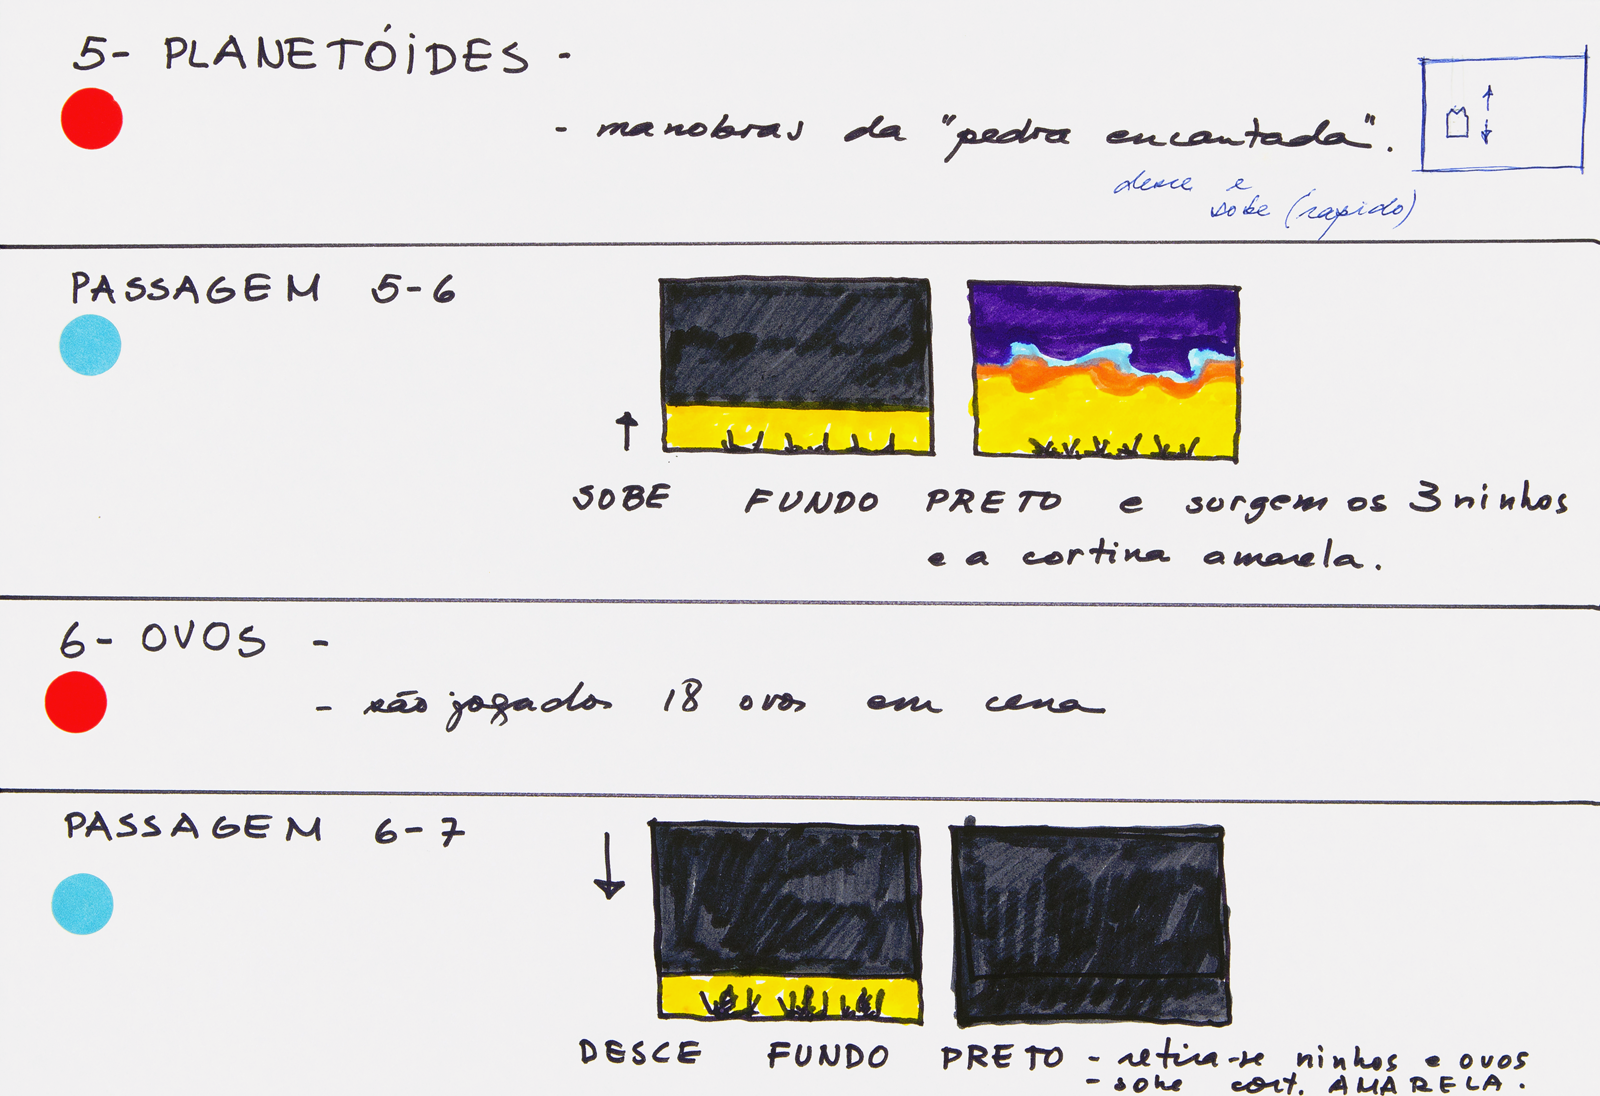 5- PLANETÓIDES -
- manobras da "pedra encantada".
desce e
sobe (rapido)
PASSAGEM 5-6
SOBE FUNDO PRETO e surgem os 3 ninhos
e a cortina amarela.
6- OVOS -
- são jogados 18 ovos em cena
PASSAGEM 6-7
DESCE FUNDO PRETO - retira-se ninhos e ovos
- sobe cort. AMARELA.